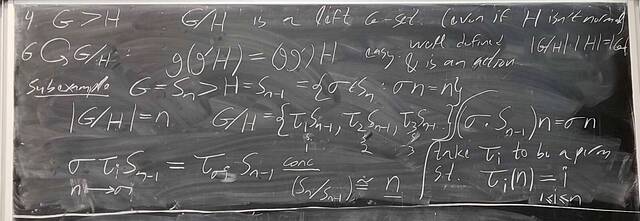 4 G > H G/H is a left G-set. (even if H isn't normal
G ↻ G/H : g(g'H) = (gg')H easy well defined & is an action. |G/H| |H| = |G|
Subexample G = Sₙ > H = Sₙ₋₁ = {σ ∈ Sₙ : σn = n}
|G/H| = n G/H = {τ₁Sₙ₋₁, τ₂Sₙ₋₁, τ₃Sₙ₋₁ (σ·Sₙ₋₁)n = σn
1 2 3
σ τᵢ Sₙ₋₁ = Sₙ₋₁ conc (Sₙ/Sₙ₋₁) ≅ n
take τᵢ to be a perm
s.t. τᵢ(n) = i
1≤i≤n